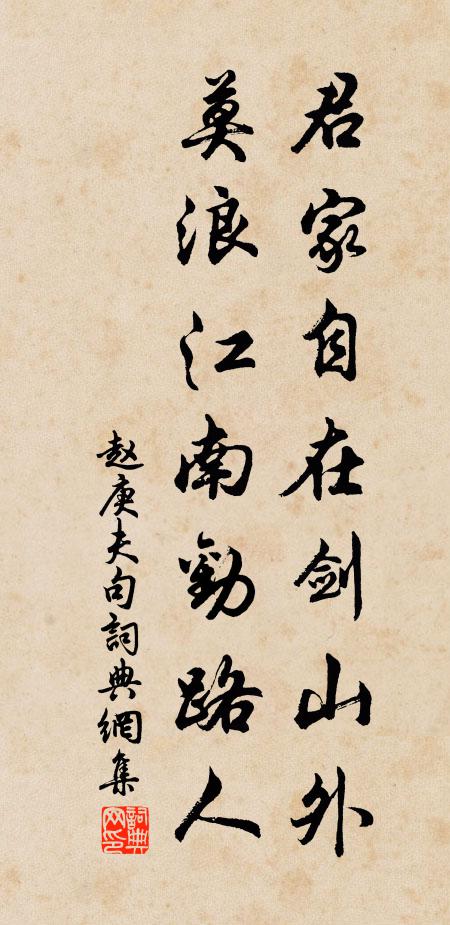 君家自在剑山外
莫浪江南勸路人
赵庚夫句詞典網集
詞典網印